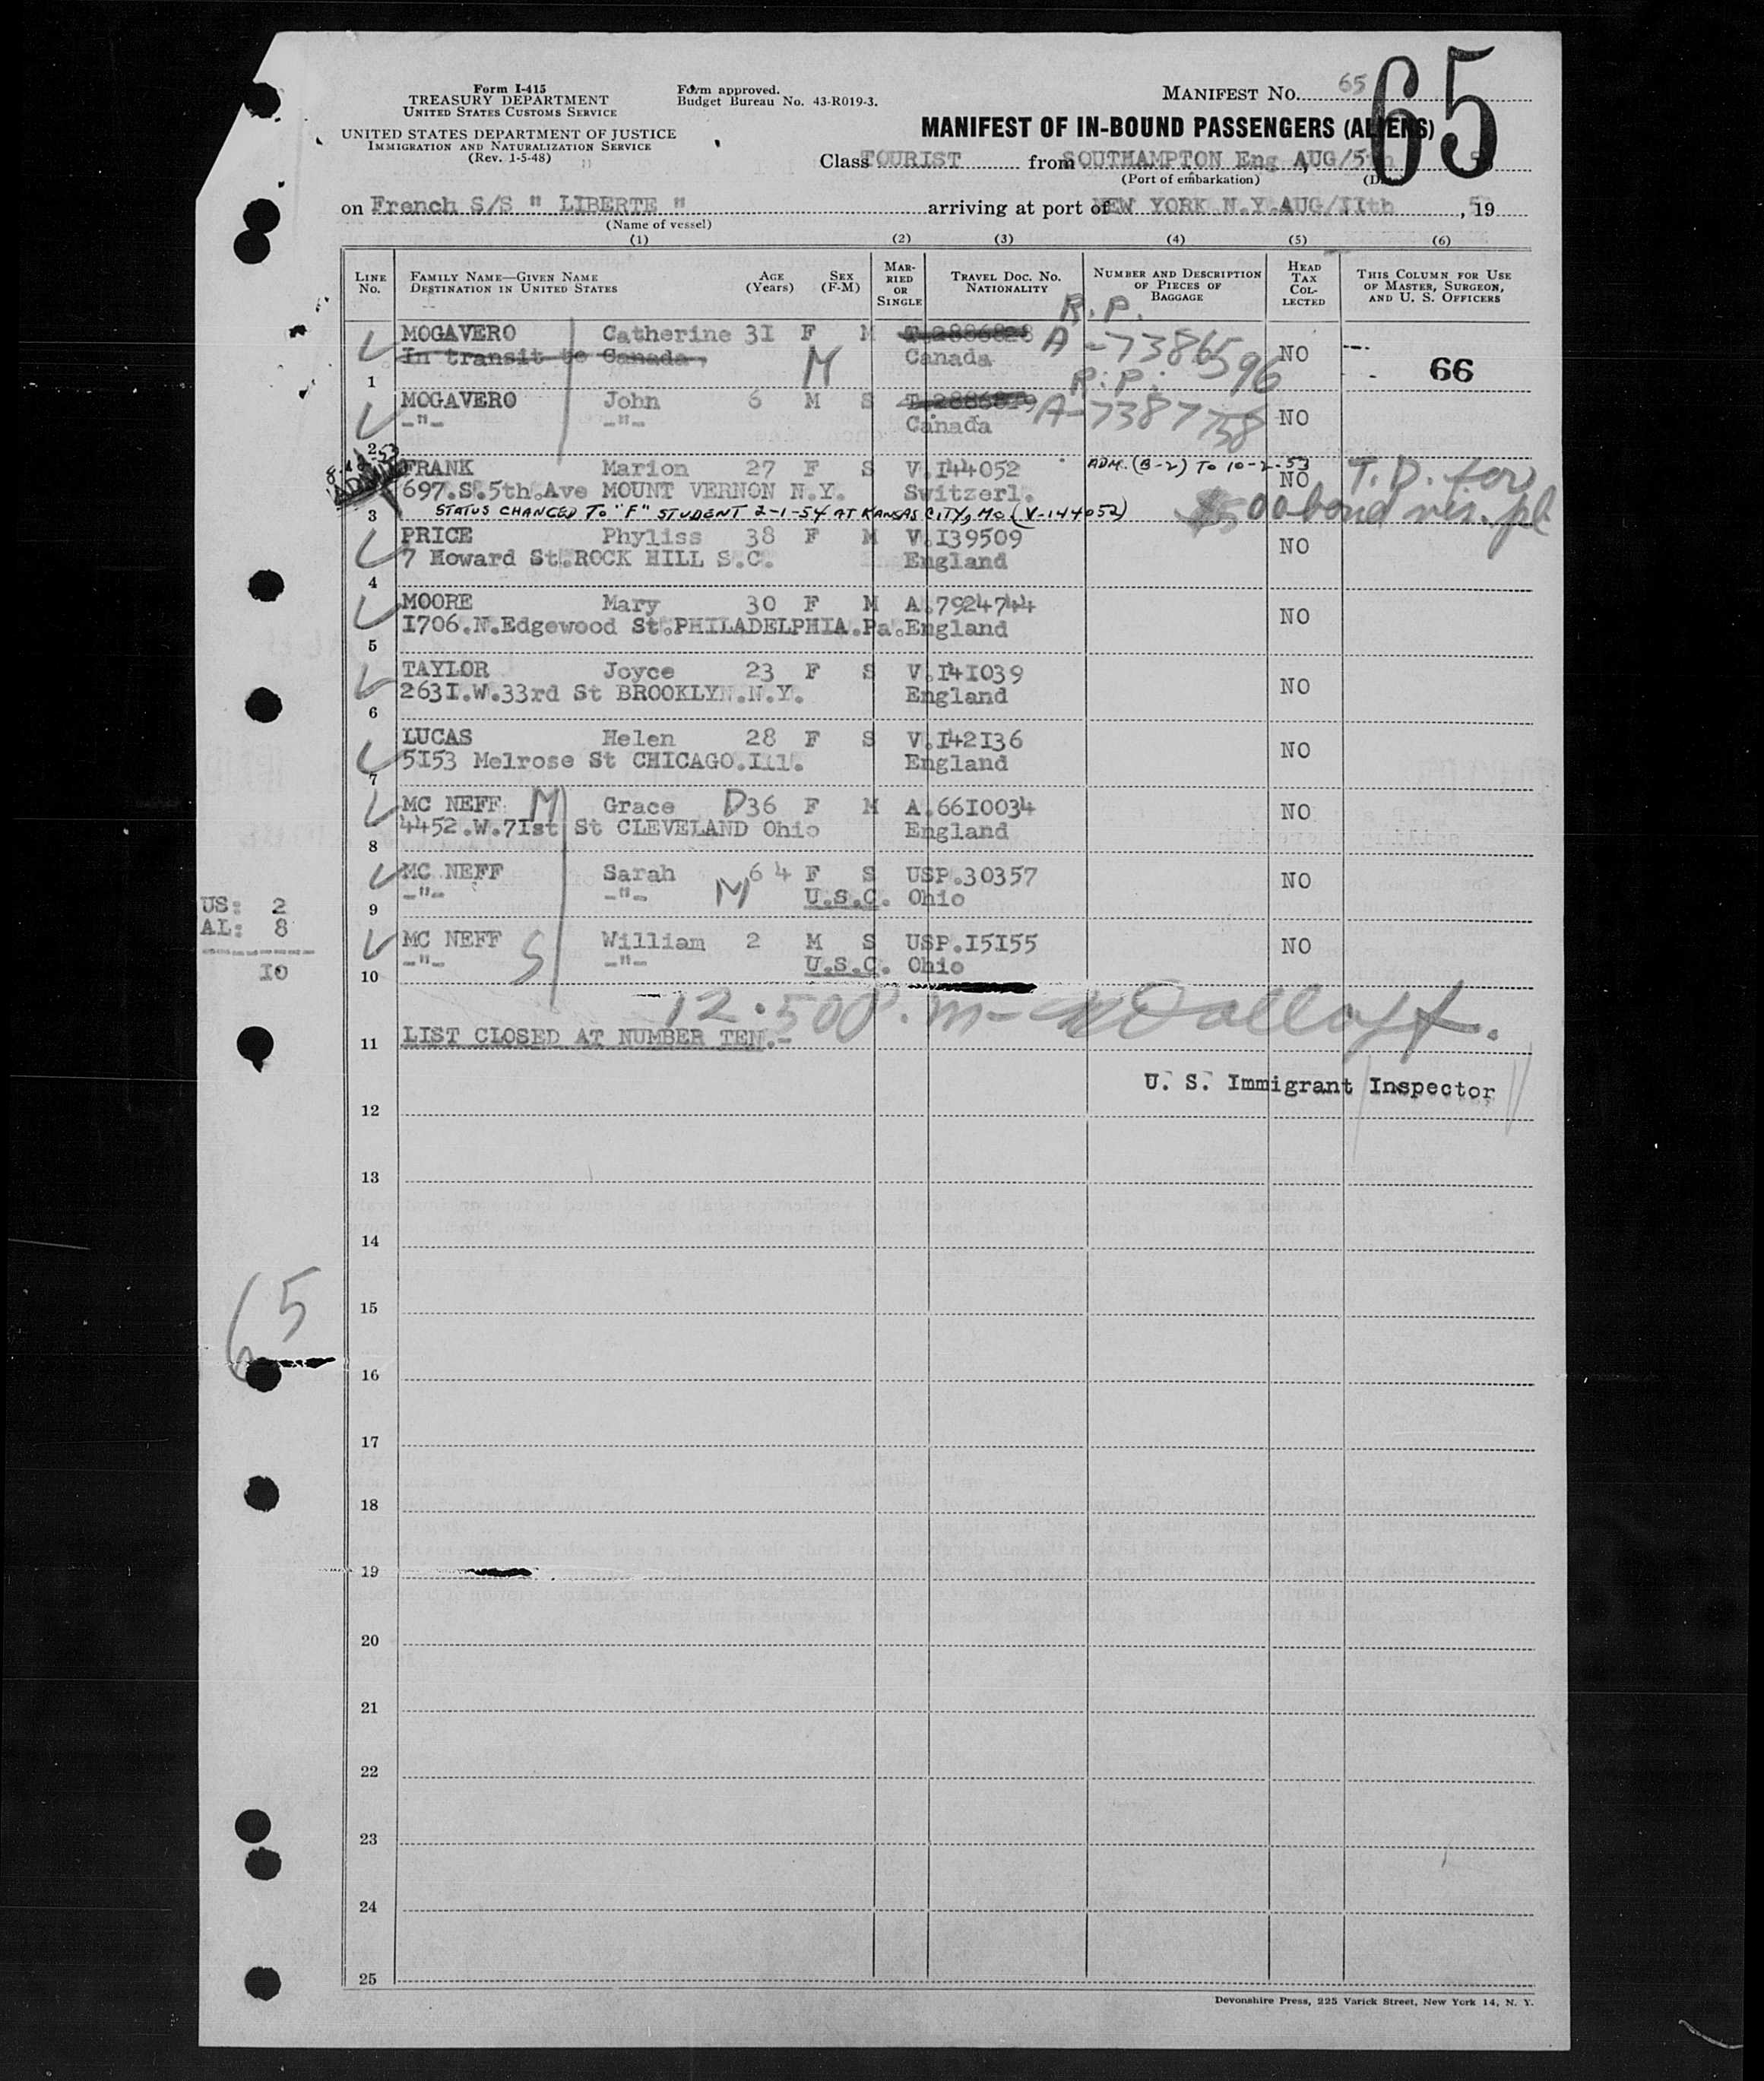 Form I-415
TREASURY DEPARTMENT
UNITED STATES CUSTOMS SERVICE
UNITED STATES DEPARTMENT OF JUSTICE
IMMIGRATION AND NATURALIZATION SERVICE
(Rev. 1-5-48)
Form approved.
Budget Bureau No. 43-R019-3.
MANIFEST No. 65
65
MANIFEST OF IN-BOUND PASSENGERS (ALIENS)
Class TOURIST from SOUTHAMPTON Eng AUG/5th
(Port of embarkation)
on French S/S " LIBERTE " arriving at port of NEW YORK N.Y. AUG/IIth , 19
(Name of vessel)
(1) (2) (3) (4) (5) (6)
LINE No. FAMILY NAME—GIVEN NAME DESTINATION IN UNITED STATES AGE (Years) SEX (F-M) MARRIED OR SINGLE TRAVEL DOC. NO. NATIONALITY NUMBER AND DESCRIPTION OF PIECES OF BAGGAGE HEAD TAX COLLECTED THIS COLUMN FOR USE OF MASTER, SURGEON, AND U. S. OFFICERS
R.P.
MOGAVERO Catherine 3I F M T.2886828 A-7386596 NO
In transit to Canada, M Canada 66
1
R.P.
MOGAVERO John 6 M S A-7387758 NO
-"- -"- Canada
2
ADMIT
FRANK Marion 27 F S V.I44052 ADM. (B-2) TO 10-2-53 NO T.D. for
697.S.5th.Ave MOUNT VERNON N.Y. Switzerl. $500 bond
3 STATUS CHANGED TO "F" STUDENT 2-1-54 AT KANSAS CITY, MO. (V-144052)
PRICE Phyliss 38 F M V.I39509 NO
7 Howard St.ROCK HILL S.C. England
4
MOORE Mary 30 F M A.7924744 NO
I706.N.Edgewood St.PHILADELPHIA.Pa. England
5
TAYLOR Joyce 23 F S V.I4I039 NO
263I.W.33rd St BROOKLYN.N.Y. England
6
LUCAS Helen 28 F S V.I42I36 NO
5I53 Melrose St CHICAGO.Ill. England
7
MC NEFF M Grace D 36 F M A.66I0034 NO
4452.W.7Ist St CLEVELAND Ohio England
8
MC NEFF Sarah 64 F S USP.30357 NO
-"- -"- M U.S.C. Ohio
9
US: 2
AL: 8
I0
MC NEFF S William 2 M S USP.I5I55 NO
-"- -"- U.S.C. Ohio
10
12.50 P.m-
11 LIST CLOSED AT NUMBER TEN.-
U. S. Immigrant Inspector
12
13
14
65
15
16
17
18
19
20
21
22
23
24
25
Devonshire Press, 225 Varick Street, New York 14, N. Y.